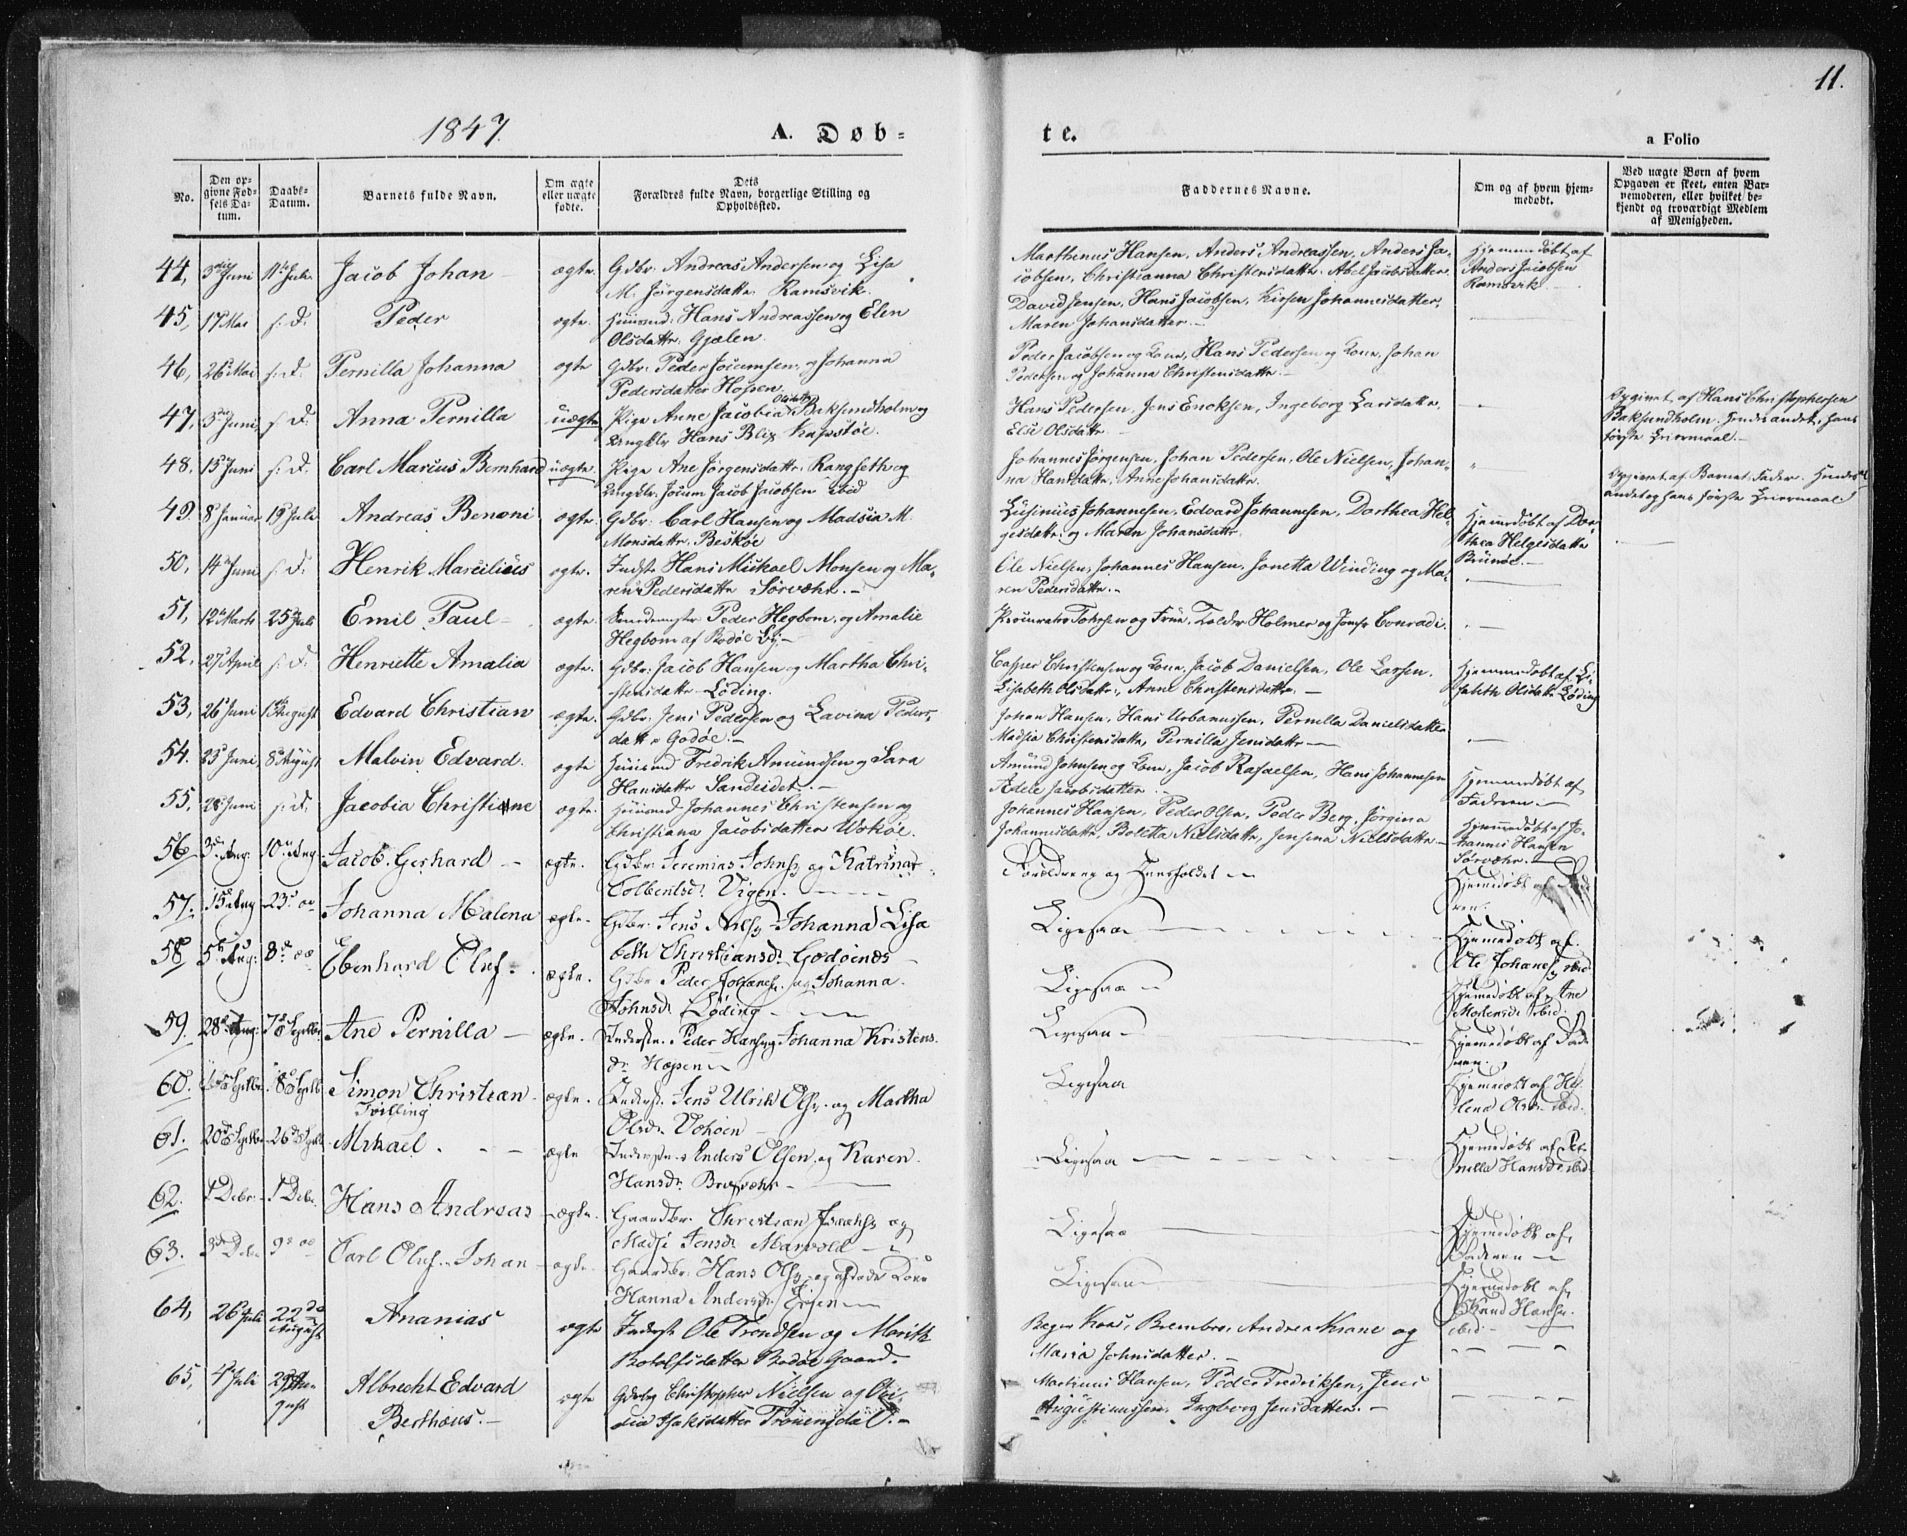 1847.
A. Døb-
te.
11.
a Folio
No.
Den op-
givne Fød-
sels Da-
tum.
Daabs-
Datum.
Barnets fulde Navn.
Om ægte
eller uægte
fødte.
Dets
Forældres fulde Navn, borgerlige Stilling og
Opholdssted.
Faddernes Navne.
Om og af hvem hjem-
medøbt.
Ved uægte Børn af hvem
Opgaven er skeet, enten Bar-
nemoderen, eller hvilket be-
kjendt og troværdigt Medlem
af Menigheden.
44, 3die Juni 11te Juli Jacob Johan ægte. Gdbr. Andreas Andersen og Lisa
M. Jørgensdattr. Ramsvik.
Marthinus Hansen, Anders Andreassen, Anders Ja-
cobsen, Christianna Christensdattr. Abel Jacobsdatter
Hjemmedøbt af
Anders Jacobsen
Ramsvik
45, 17 Mai s. D. Peder ægte. Huusmd. Hans Andreassen og Elen
Olsdattr. Gjælen.
David Jensen, Hans Jacobsen, Kirsen Johannesdatter,
Maren Johansdatter.
46, 26 Mai s. D. Pernilla Johanna ægte Gdbr. Peder Joiumsen, og Johanna
Pedersdatter Hopen.
Peder Jacobsen og Kone, Hans Pedersen og Kone, Johan
Pedersen og Johanna Christensdattr.
47, 5te Juni, s. D. Anna Pernilla uægte Pige Anne Jacobia Olsdattr Baksundholm og
Ungklr. Hans Blix
Hans Pedersen, Jens Enoksen, Ingeborg Larsdattr,
Else Olsdattr.
Opgivet af Hans Christophersen
Baksundholm. Hendes andet, hans
første Leiermaal.
48. 15 Juni s. D. Carl Marcus Bernhard uægte. Pige Ane Jørgensdattr. Rangseth og
Ungklr. Jocum Jacob Jacobsen ibid
Johannes Jørgensen, Johan Pedersen, Ole Nielsen, Johan-
na Hansdattr, Anne Johansdattr.
Opgivet af Barnets Fader. Hendes
andet og hans første Leiermaal
49. 8 Januar 19 Juli Andreas Benoni ægte. Gdbr. Carl Hansen og Madsia M.
Monsdattr. Beskøe
Lusinius Johannesen, Edvard Johannesen, Dorthea Hel-
gesdattr. og Maren Johansdattr.
Hjemmedøbt af Dor-
thea Helgesdattr
50, 14 Juni s. D. Henrik Marcilius ægte. Indst. Hans Mickael Monsen og Ma-
ren Pedersdattr Sørvær.
Ole Nielsen, Johannes Hansen, Jonetta Winding og Ma-
ren Pedersdattr.
51, 12te Marts 25 Juli Emil Paul ægte. Peder Hegbom, og Amalie
Hegbom af Bodøe By
Procurator Tohrsen og Frue, Tolder Holmer og Jomfr. Conradi.
52. 27 April s. D. Henriette Amalia ægte. Gdbr. Jacob Hansen og Martha Chri-
stensdattr Løding.
Casper Christensen og Kone, Jacob Danielsen, Ole Larsen,
Lisabeth Olsdattr, Anne Christensdattr.
Hjemmedøbt af Li-
sabeth Olsdattr Løding
53, 26 Juni 1ste August Edvard Christian ægte. Gdbr. Jens Pedersen og Lavina Peders-
dattr Godøe.
Johan Hansen, Hans Urbanussen, Pernilla Danielsdatter
Madsia Christensdattr, Pernilla Jensdattr
54. 23 Juni, 8 August Malvin Edvard. ægte Huusmd Fredrik Amundsen og Sara
Hansdattr Sandeidet.
Amund Johnsen og Kone, Jacob Rafaelsen, Hans Johannesen
Adele Jacobsdatter
Hjemmedøbt af
Faderen.
55, 28 Juni s. D. Jacobia Christiane ægte. Huusmd Johannes Christensen og
Christiana Jacobsdatter Wokøe.
Johannes Hansen, Peder Olsen, Peder Berg, Jørgina
Johannesdattr, Boletta Nielsdattr, Jensena Nielsdattr
Hjemmedøbt af Jo-
hannes Hansen
Sørvær.
56 3die Aug. 10de Aug. Jacob Gerhard ægte. Gdbr. Jeremias Johns. og Katrina
Tolbentsd. Vigen.
Forældrene og Huusholdet
Hjemedøbt af Fad-
ren.
57. 15 Aug 23 Johanna Malena ægte. Gdbr. Jens Johanna Lisa
beth Christiansd. Godøenes
Ligesaa
Hjemedøbt af
Ole Johanes. ibid.
58 5te Aug. 8de Ebenhard Oluf. ægte. Gdbr Peder Johanes. og Johanna
Johnsd. Løding
Ligesaa
Hjemedøbt af Ane
ibid.
59. 28 Aug. 7de Septbr. Ane Pernilla ægte. Inderst. Peder Hans. og Johanna Kristens
dr. Hopsen
Ligesaa
Hjemedøbt af Fade
ren.
60. Septbr. 18de Septb. Simon Christian
Tvilling ægte. Inderst. Jens Ulrik Ols. og Martha
Olsdr. Vohoen
Ligesaa
Hjemedøbt af He-
lena Olsdr. ibid.
61. 20de Septbr. 26de Septb. Mikael. ægte Inderste Anders Olsen og Karen
Hansdr.
Ligesaa
Hjemedøbt af Per-
nilla Hansdr ibid.
62. Hans Andreas ægte. Gaardbr. Christian Isachs. og
Madsi Jensd. Marvold
Ligesaa
Hjemedøbt af
Faderen
63. 9de Carl Oluf Johan ægte. Gaardbr. Hans Ols. og afdøde Kone
Hanna Andersd.
Ligesaa
Hjemedøbt af
Knud Hans.
ibid
64, 26 Juli 22de
August Ananias ægte Inderst Ole Trondsen og Marith
Botolfsdatter Bodøe Gaard.
Bager Koos, Brembro, Andrea Krane og
Maria Johnsdatter.
65, 4 Juli 29 Au-
gust Albrecht Edvard
Bertheus. ægte Gdbr. Christopher Nielsen og Ovi-
dia Isaksdatter Trouensdal.
Martinus Hansen, Peder Fredriksen, Jens
Augustinussen, Ingborg Jensdatter.